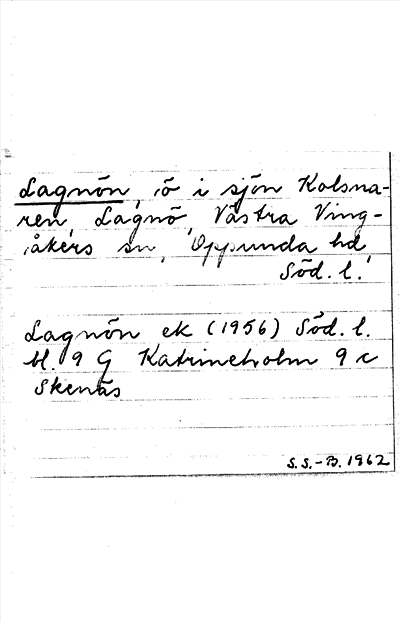 Lagnön, ö i sjön Kolsna-
ren, Lagnö, Västra Ving-
åkers sn, Oppunda hd,
Söd. l.
Lagnön ek (1956) Söd. l.
bl. 9 G Katrineholm 9 c
Skenäs
S.S.-B. 1962